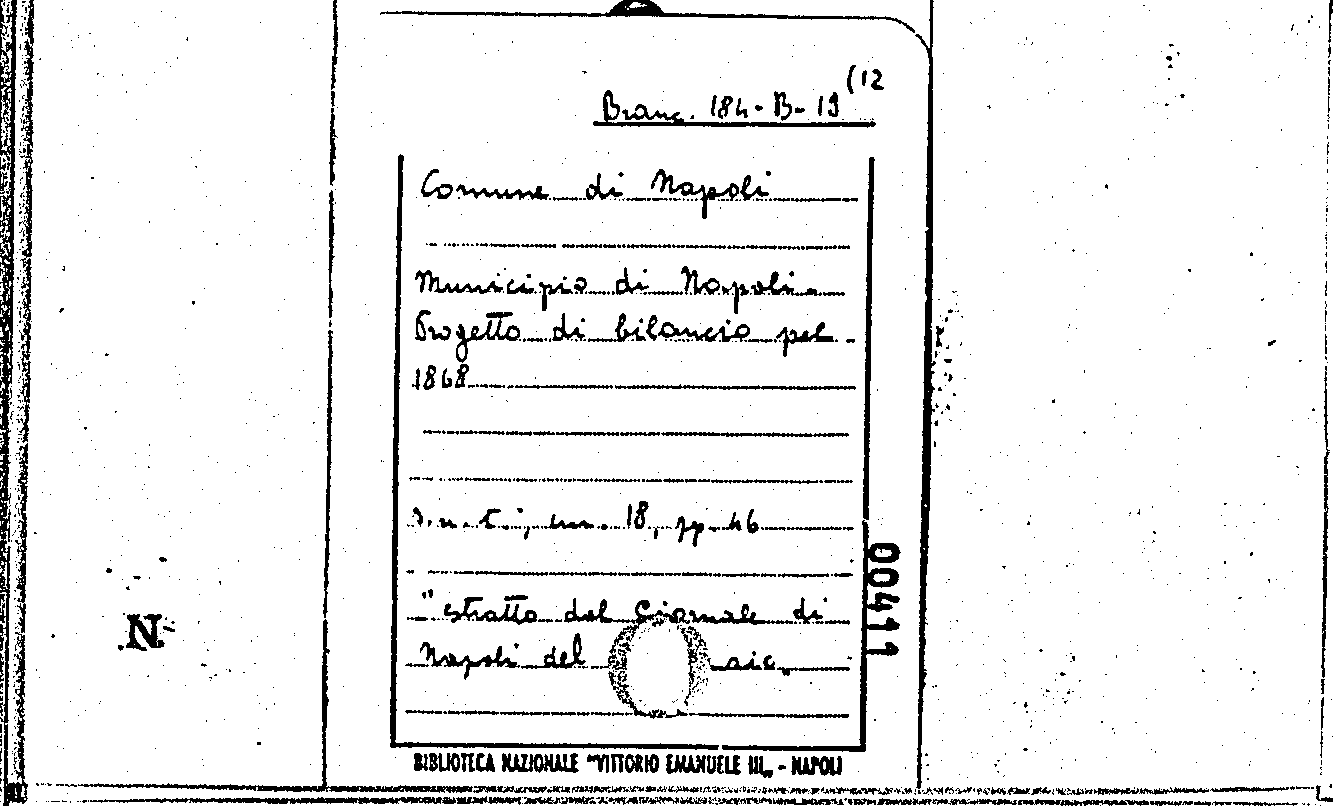 (12
Branc. 184-B-19
Comune di Napoli
Municipio di Napoli.
Progetto di bilancio pel
1868
s.n.t., cm. 18, pp. 46
"Estratto dal Giornale di
Napoli del aic„
00411
N
BIBLIOTECA NAZIONALE "VITTORIO EMANUELE III„ - NAPOLI